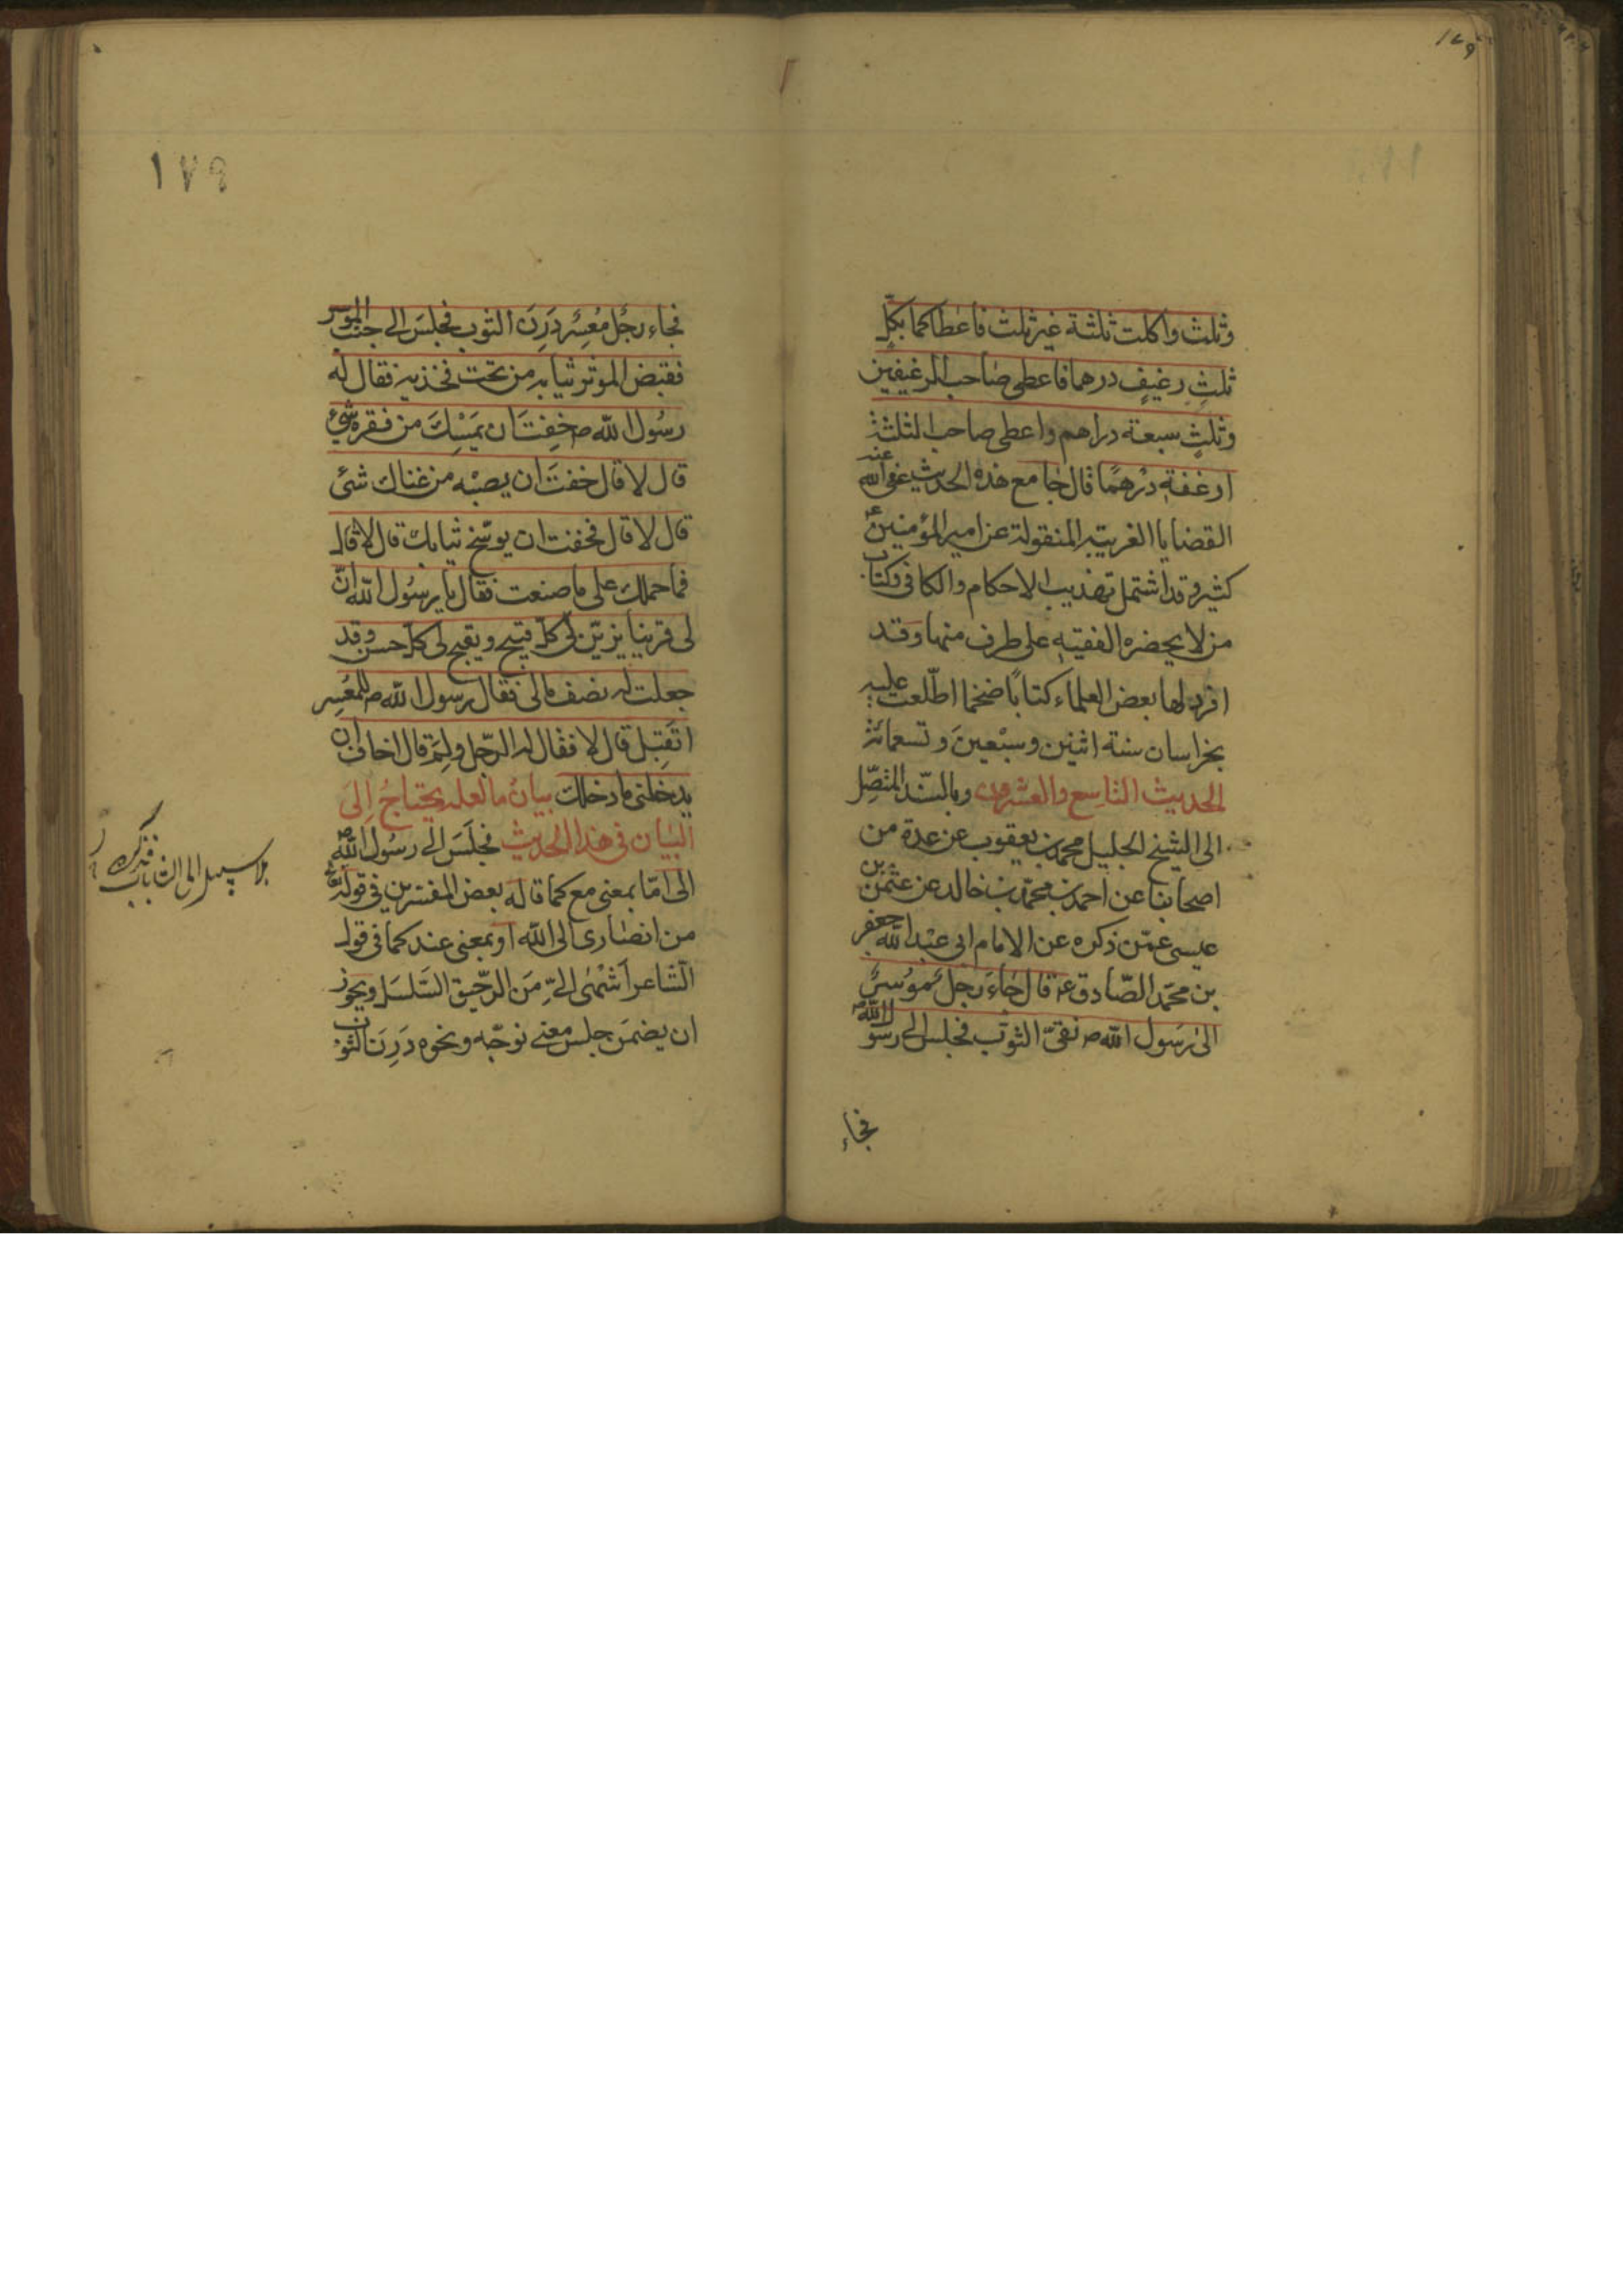 ١٧٩
وثلث واكلت ثلثة غير ثلث فاعطاكما بكل
ثلث رغيف درهما فاعطى صاحب الرغيفين
وثلث سبعة دراهم واعطى صاحب الثلثة
ارغفة درهمًا قال جامع هذه الحديث عفى الله عنه
القضايا الغريبة المنقولة عن امير المؤمنين ع
كثيرة وقد اشتمل تهذيب الاحكام والكافى وكتاب
من لا يحضره الفقيه على طرف منها وقد
افرد لها بعض العلماء كتابًا ضخما اطّلعت عليه
بخراسان سنة اثنين وسبعين وتسعمائة
الحديث التاسع والعشرون وبالسّند المتّصِل
الى الشيخ الجليل محمد بن يعقوب عن عدة من
اصحابنا عن احمد بن محمّد بن خالد عن عثمن بن
عيسى عمّن ذكره عن الامام ابى عبد الله جعفر
بن محمّد الصّادق ع قال جاءَ رَجُل مُوسِرٌ
الى رَسول الله ص نقىّ الثوب فجلس الى رسول الله ص
فجاء
١٧٩
فجاء رجُل مُعسِر دَرِنَ الثوب فجلسَ الى جنب الموسر
فقبض الموسر ثيابه من تحت فخذيه فقال له
رسُول الله ص خِفتَ ان يمَسّكَ من فقره شئ
قال لا قال خفتَ ان يصيبه من غناك شئ
قال لا قال فخفت ان يوسّخ ثيابك قال لا قال
فما حملك على ما صنعت فقال يا رسُول الله انّ
لى قرينا يزيّن لى كلّ قبيح ويقبح لى كلّ حسن وقد
جعلت له نصف مالى فقال رسول الله ص للمُعسِر
اتَقبل قال لا فقال له الرّجل ولِمَ قال اخاف ان
يدخلنى ما دخلك بيانُ ما لعله يحتاجُ اِلىَ
البيان فى هذا الحديث فجلَسَ الى رسُول الله ص
الى امّا بمعنى مع كما قاله بعض المفسّرين فى قوله تعالى
من انصارى الى الله او بمعنى عند كما فى قول
الشاعر اَشْهٰى الىّ مِن الرّحيق السَلسَل ويجوز
ان يضمن جلس معنى توجّه ونحوه دَرِنَ الثوب